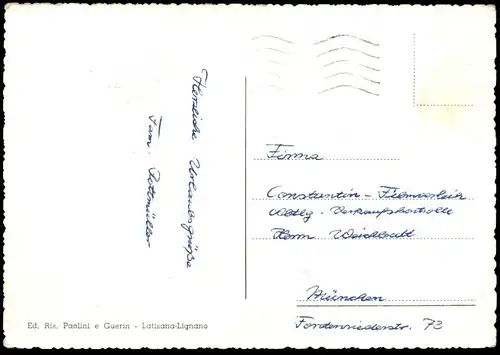 Herzliche Urlaubsgrüße
Fam. Pottmüller
Firma
Constantin-Filmverleih
Abtlg. Verkaufskontrolle
Herrn Weichbalt
München
Ed. Ris. Paolini e Guerin - Latisana-Lignano
73